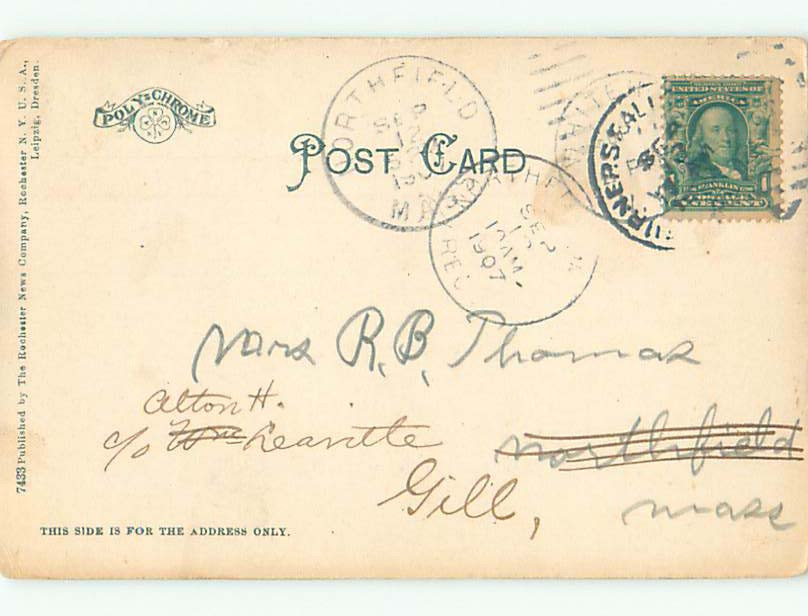 7433 Published by The Rochester News Company, Rochester N. Y. U. S. A.,
Leipzig, Dresden.
POLY-CHROME
POST CARD
NORTHFIELD
SEP
MA
REC
SEP
10 AM
1907
TURNERS FALLS
UNITED STATES OF
AMERICA
1
Mrs R. B. Thomas
Alton H.
c/o Wm Leavitte
Northfield
Gill,
Mass
THIS SIDE IS FOR THE ADDRESS ONLY.